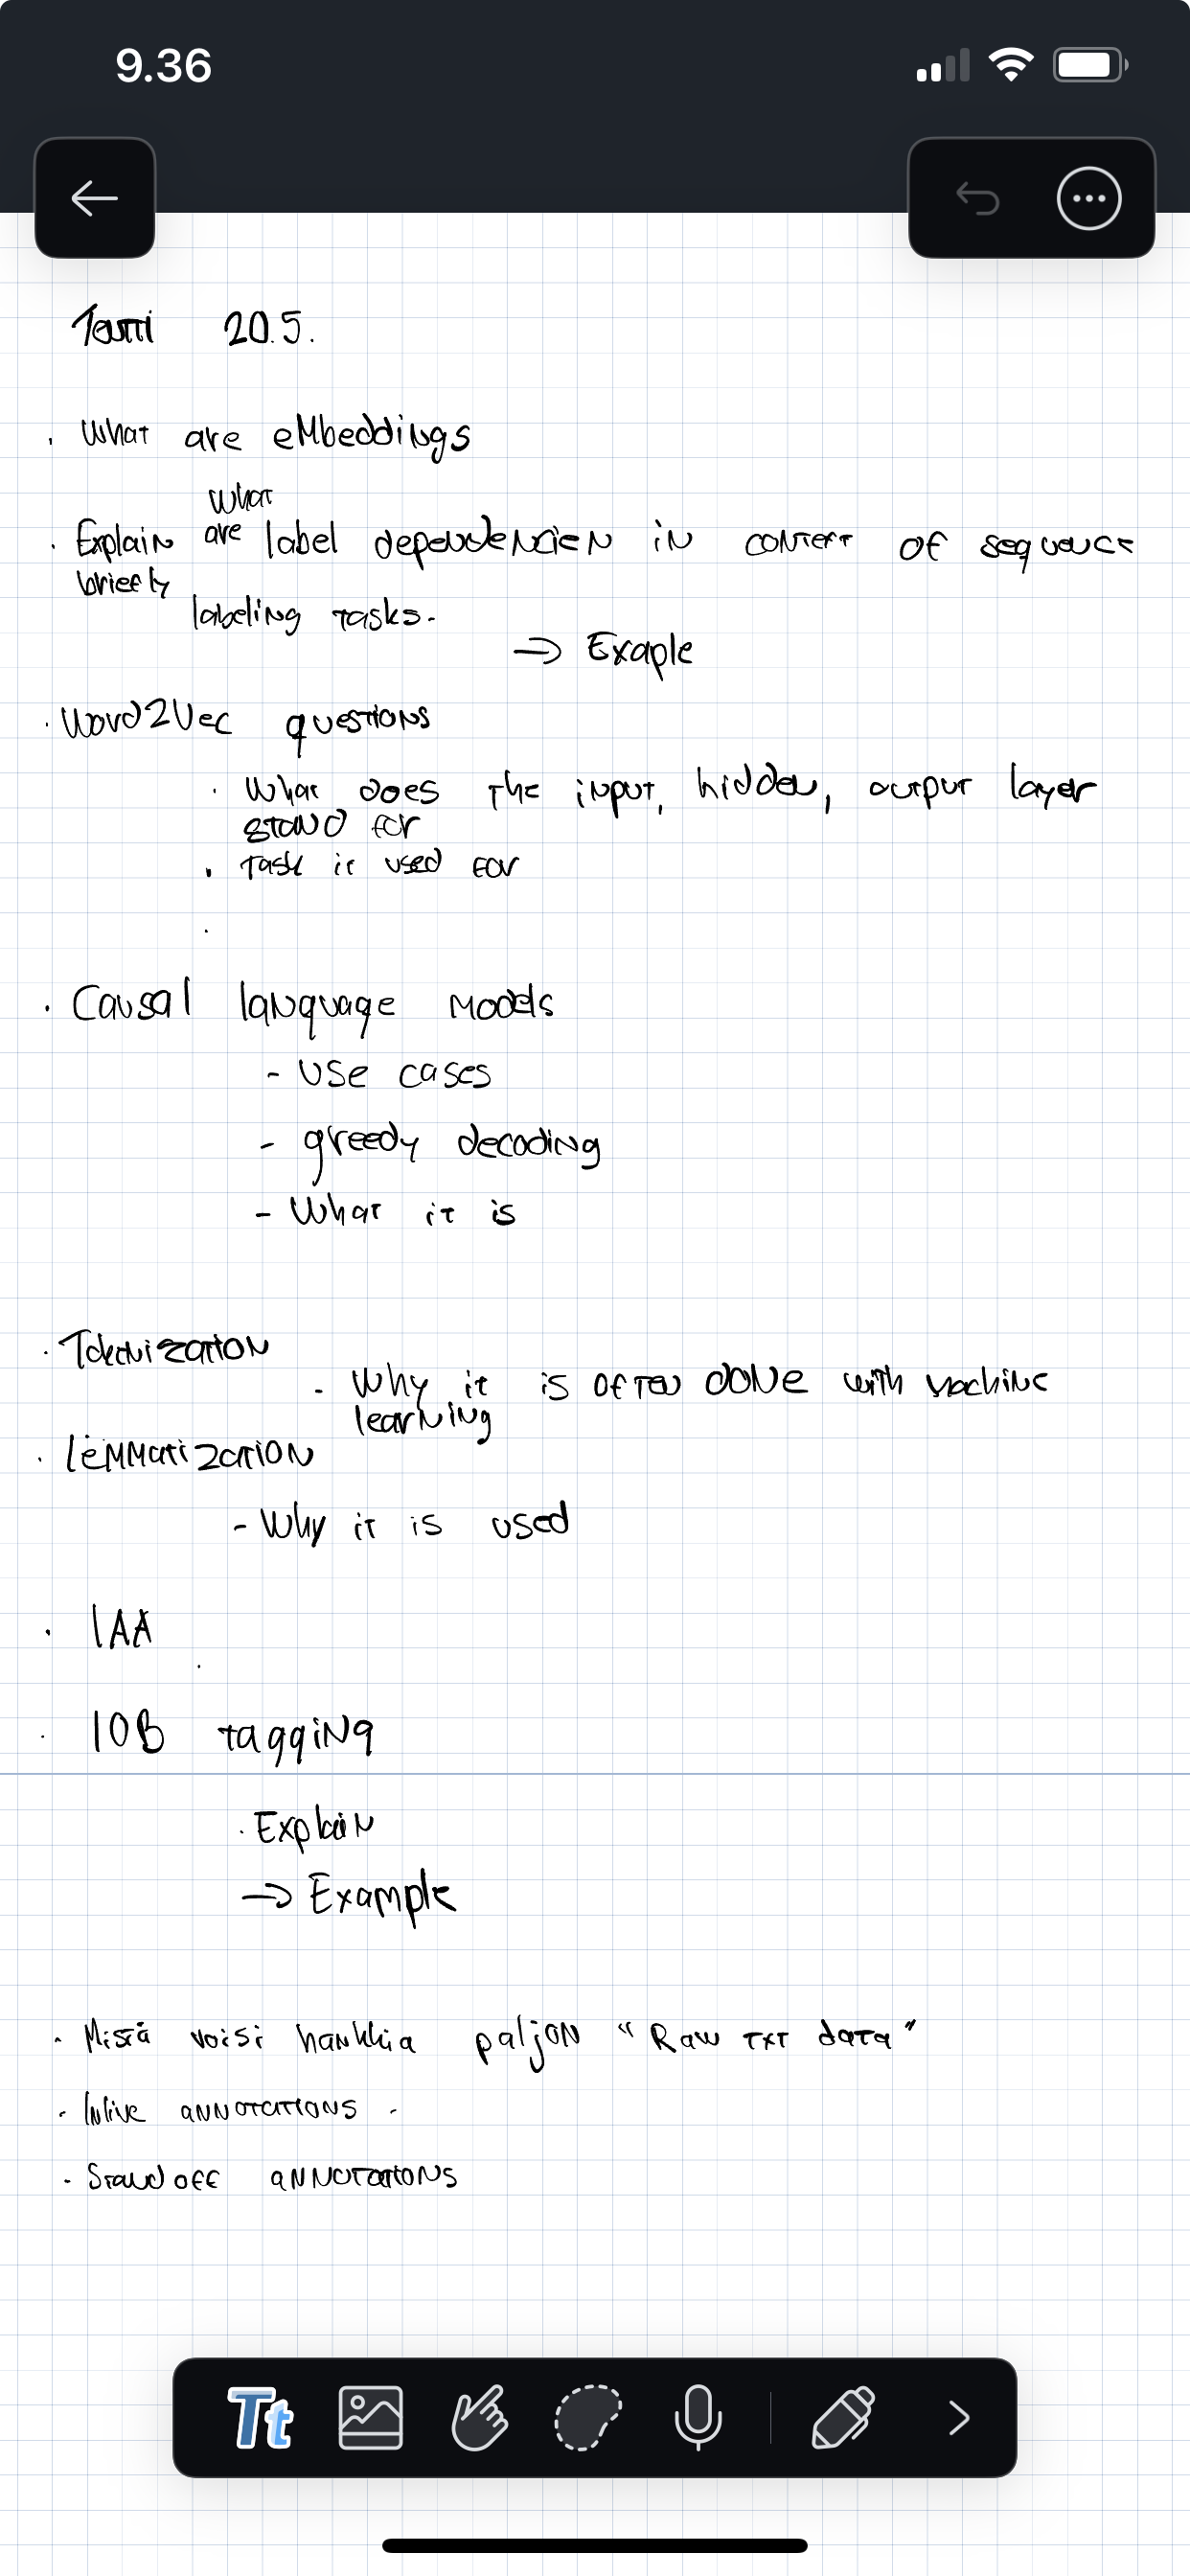 9.36
Tentti 20.5.
· What are embeddings
What
· Explain are label dependencien in context of sequence
briefly
labeling tasks.
→ Exaple
· Word2Vec questions
· What does the input, hidden, output layer
stand for
· Task it used for
· Causal language models
- use cases
- greedy decoding
- What it is
· Tokenization
- Why it is often done with machine
learning
· lemmatization
- Why it is used
· IAA
· IOB tagging
· Explain
→ Example
· Mistä voisi hankkia paljon “Raw txt data”
· Inline annotations -
· Standoff annotations
Tt